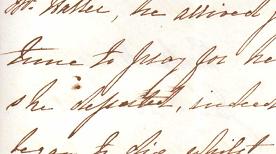 Mr. Halter, he arrived
time to pray for he
she departed, indeed
began to die whilst